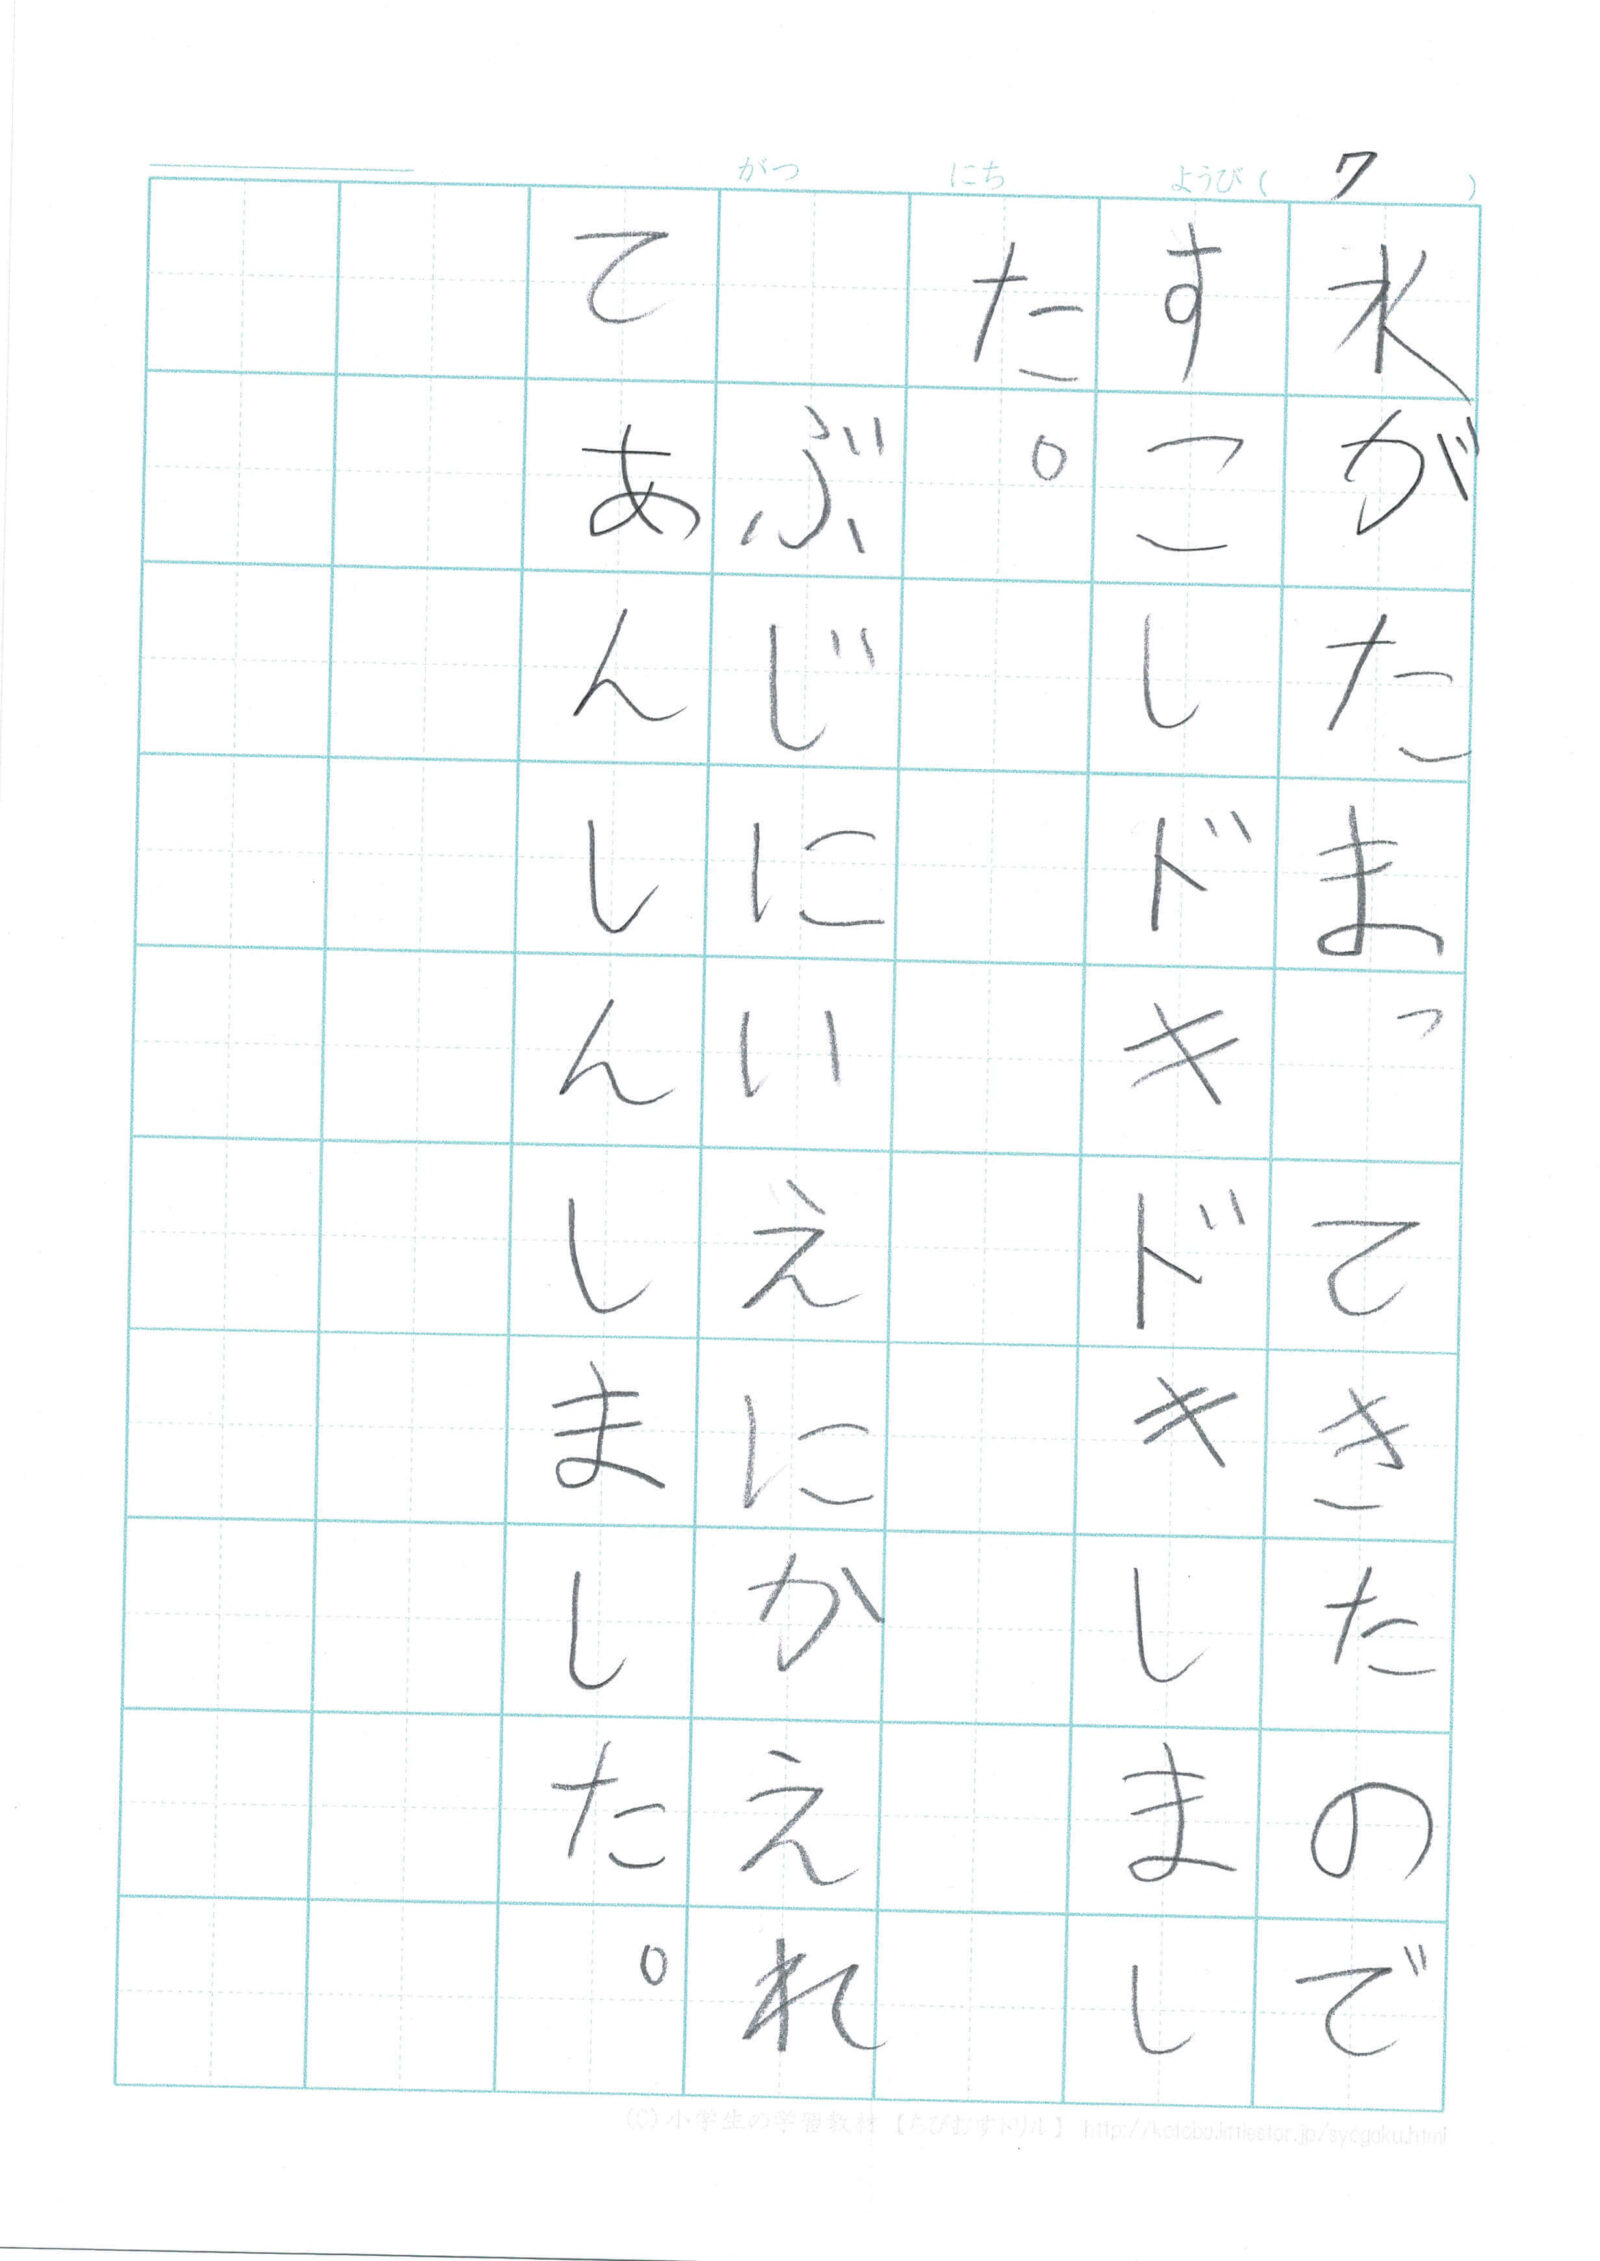 がつ にち ようび( 7 )
水がたまってきたので
すこしドキドキしまし
た。
ぶじにいえにかえれ
てあんしんしました。
(C)小学生の学習教材【ちびむすドリル】 http://kotoba.littlestar.jp/syogaku.html